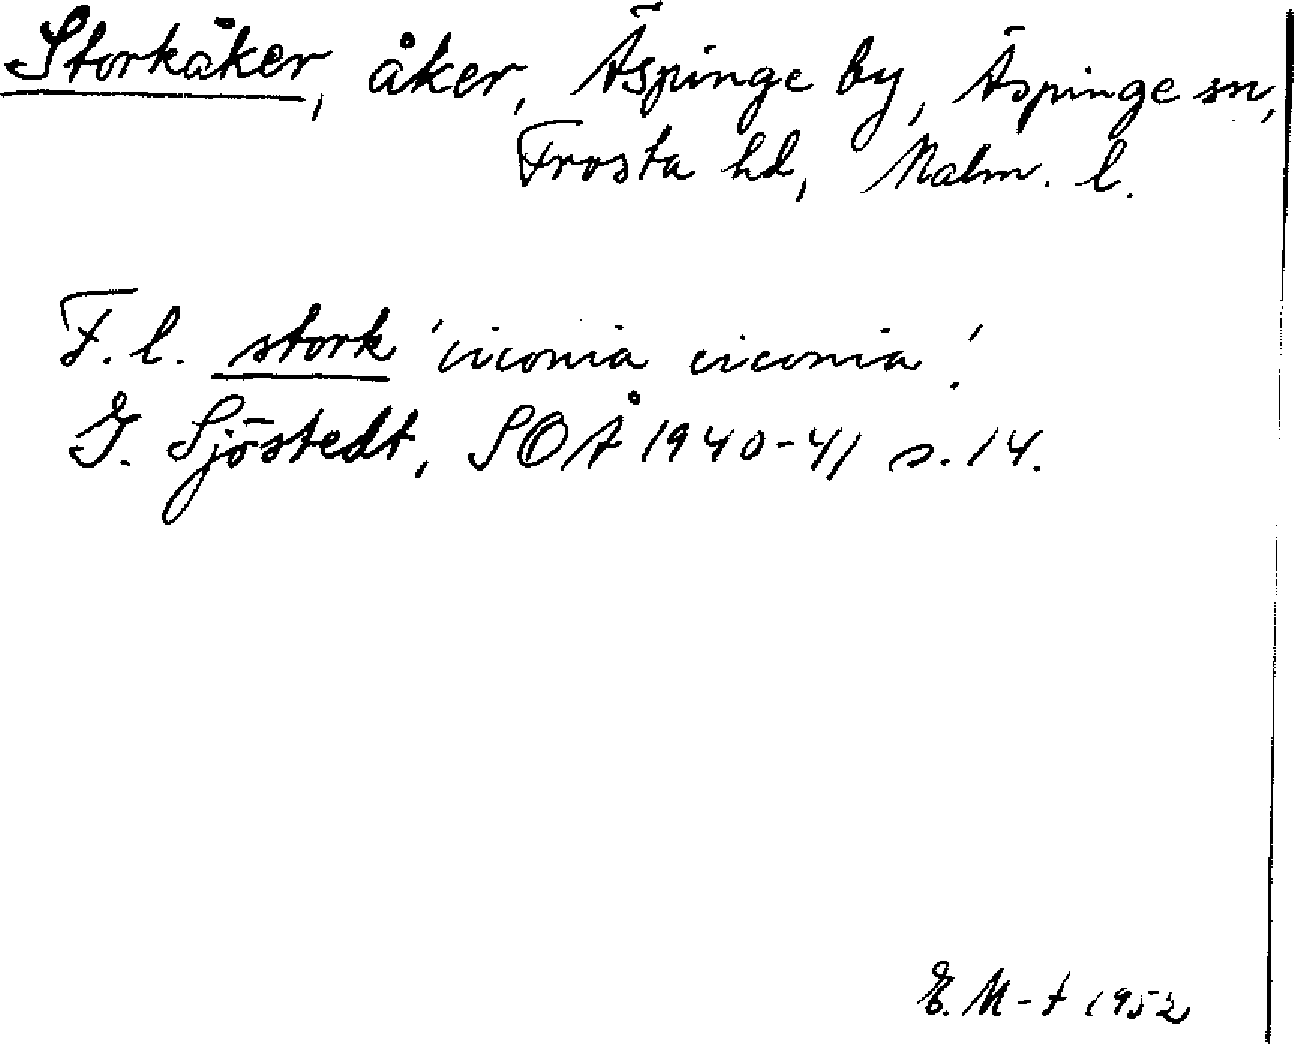 Storkåker, åker, Äspinge by, Äspinge sn,
Frosta hd, Malm. l.
F. l. stork 'ciconia ciconia'.
G. Sjöstedt, SOÅ 1940-41 s. 14.
E. M-t 1952